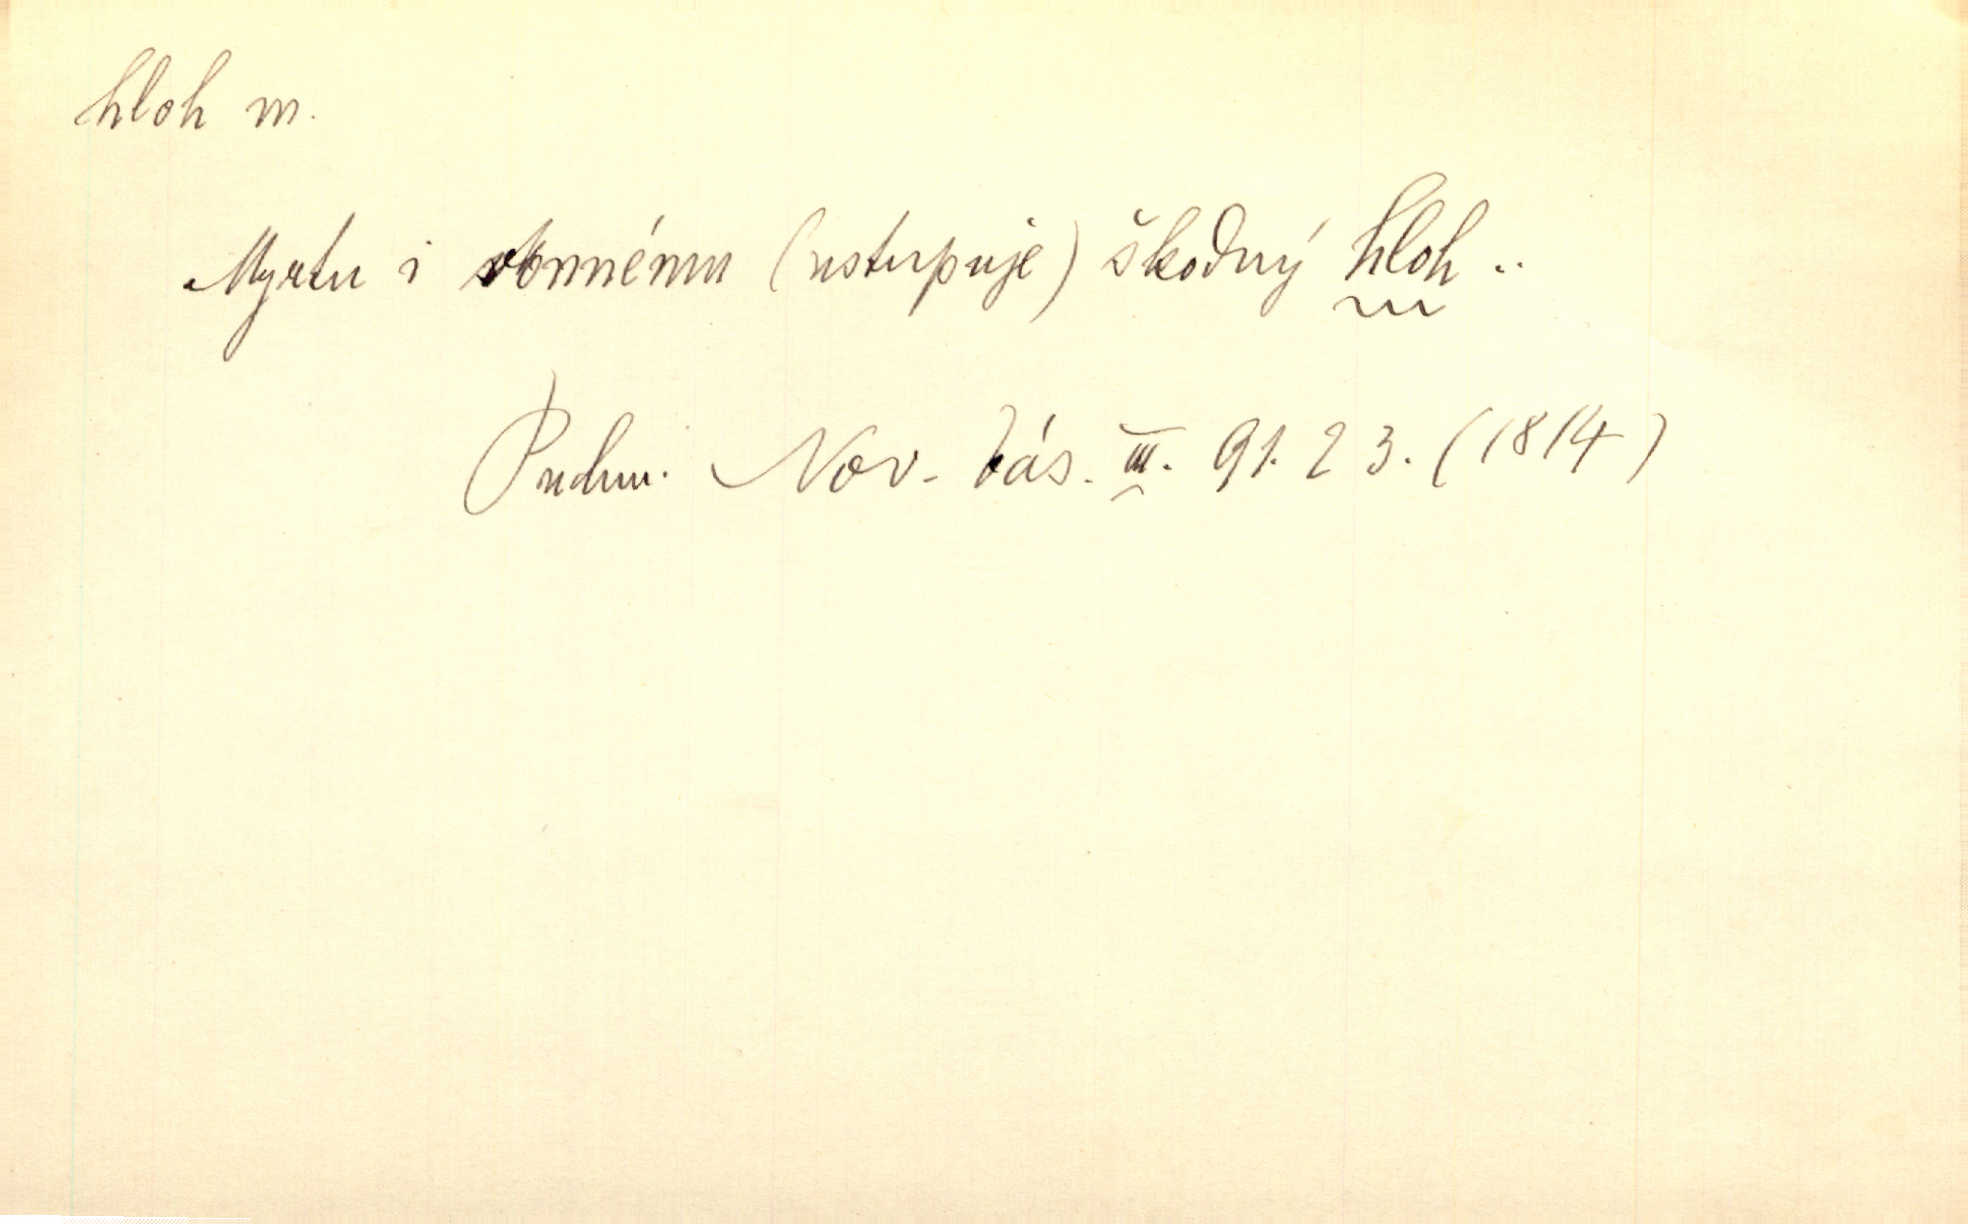 hloh m.
Myrtu i vonnému (ustupuje) škodný hloh ..
Puchm. Nov. bás. III. 91. 23. (1814)